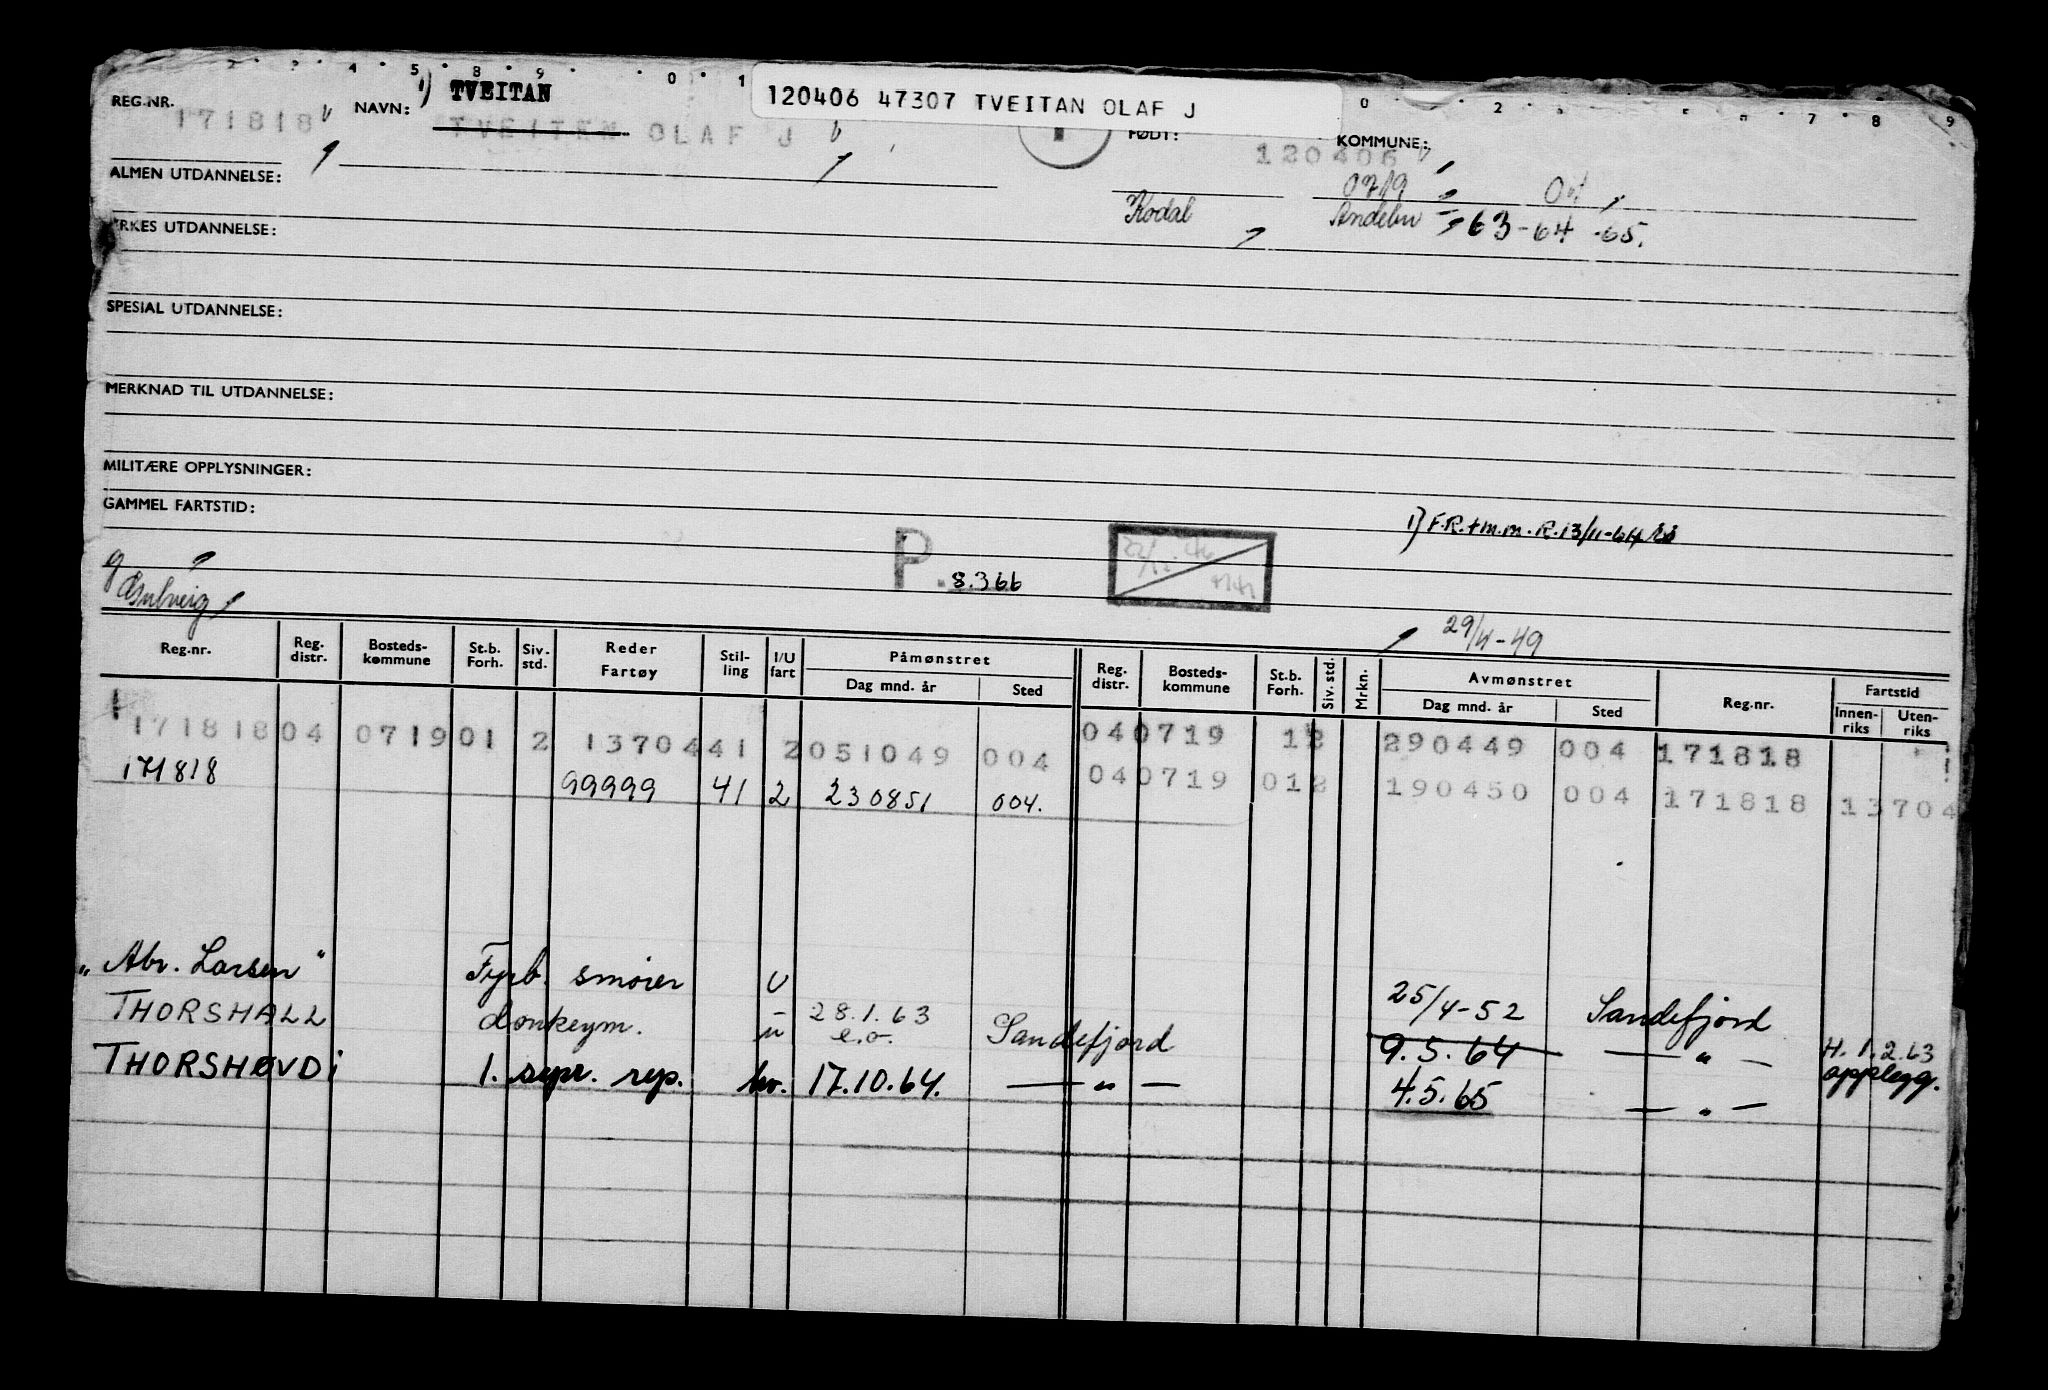 120406 47307 TVEITAN OLAF J
REG.NR. 171818 NAVN: 1) TVEITAN
TVEITEN OLAF J
FØDT: 120406 KOMMUNE:
0719
ALMEN UTDANNELSE:
Kodal Andebu 63-64-65.
YRKES UTDANNELSE:
SPESIAL UTDANNELSE:
MERKNAD TIL UTDANNELSE:
MILITÆRE OPPLYSNINGER:
GAMMEL FARTSTID:
1) F.R.+m.m.R.13/11-64
P. 8.366
g Gulveig
29/4-49
Reg.nr. Reg. distr. Bosteds-kommune St.b. Forh. Siv-std. Reder Fartøy Stil-ling I/U fart Påmønstret Dag mnd. år Sted Reg. distr. Bosteds-kommune St.b. Forh. Siv. std. Mrkn. Avmønstret Dag mnd. år Sted Reg.nr. Fartstid Innen-riks Uten-riks
171818 04 0719 01 2 13704 41 2 051049 004 04 0719 12 290449 004 171818
171818 99999 41 2 230851 004. 04 0719 012 190450 004 171818 13704
"Abr. Larsen" Fyrb. smører U 25/4-52 Sandefjord
THORSHALL donkeym. u 28.1.63 e.o. Sandefjord 9.5.64 — " — H. 1.2.63
THORSHØVDI 1. rep. hv. 17.10.64. — " — 4.5.65 — " — opplegg.